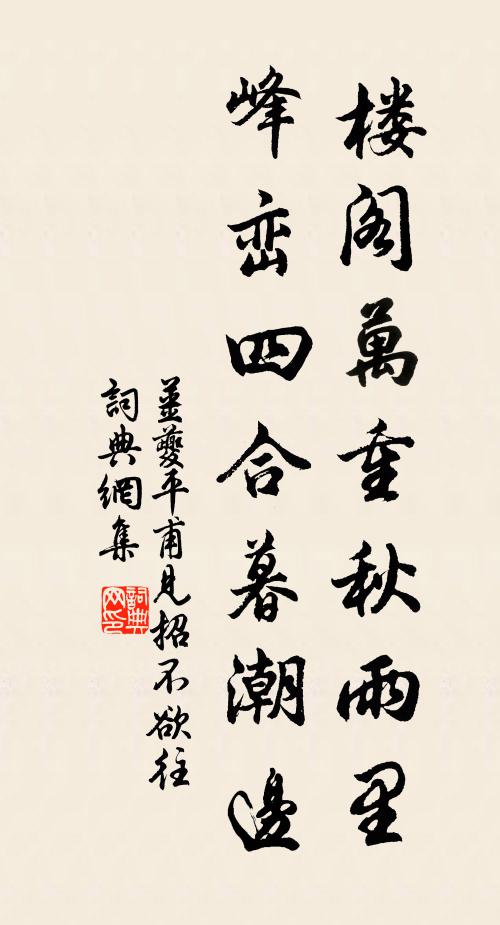 楼阁萬重秋雨里
峰峦四合暮潮邊
姜夔平甫見招不欲往
詞典網集
詞典网印